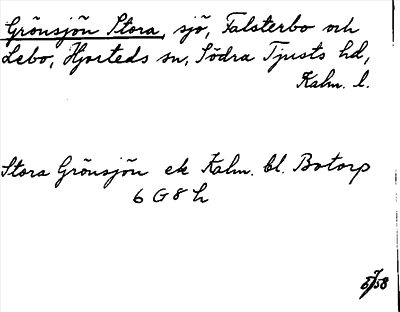 Grönsjön Stora, sjö, Falsterbo och
Lebo, Hjorteds sn, Södra Tjusts hd,
Kalm. l.
Stora Grönsjön ek Kalm. bl. Botorp
6 G 8 h
5/58